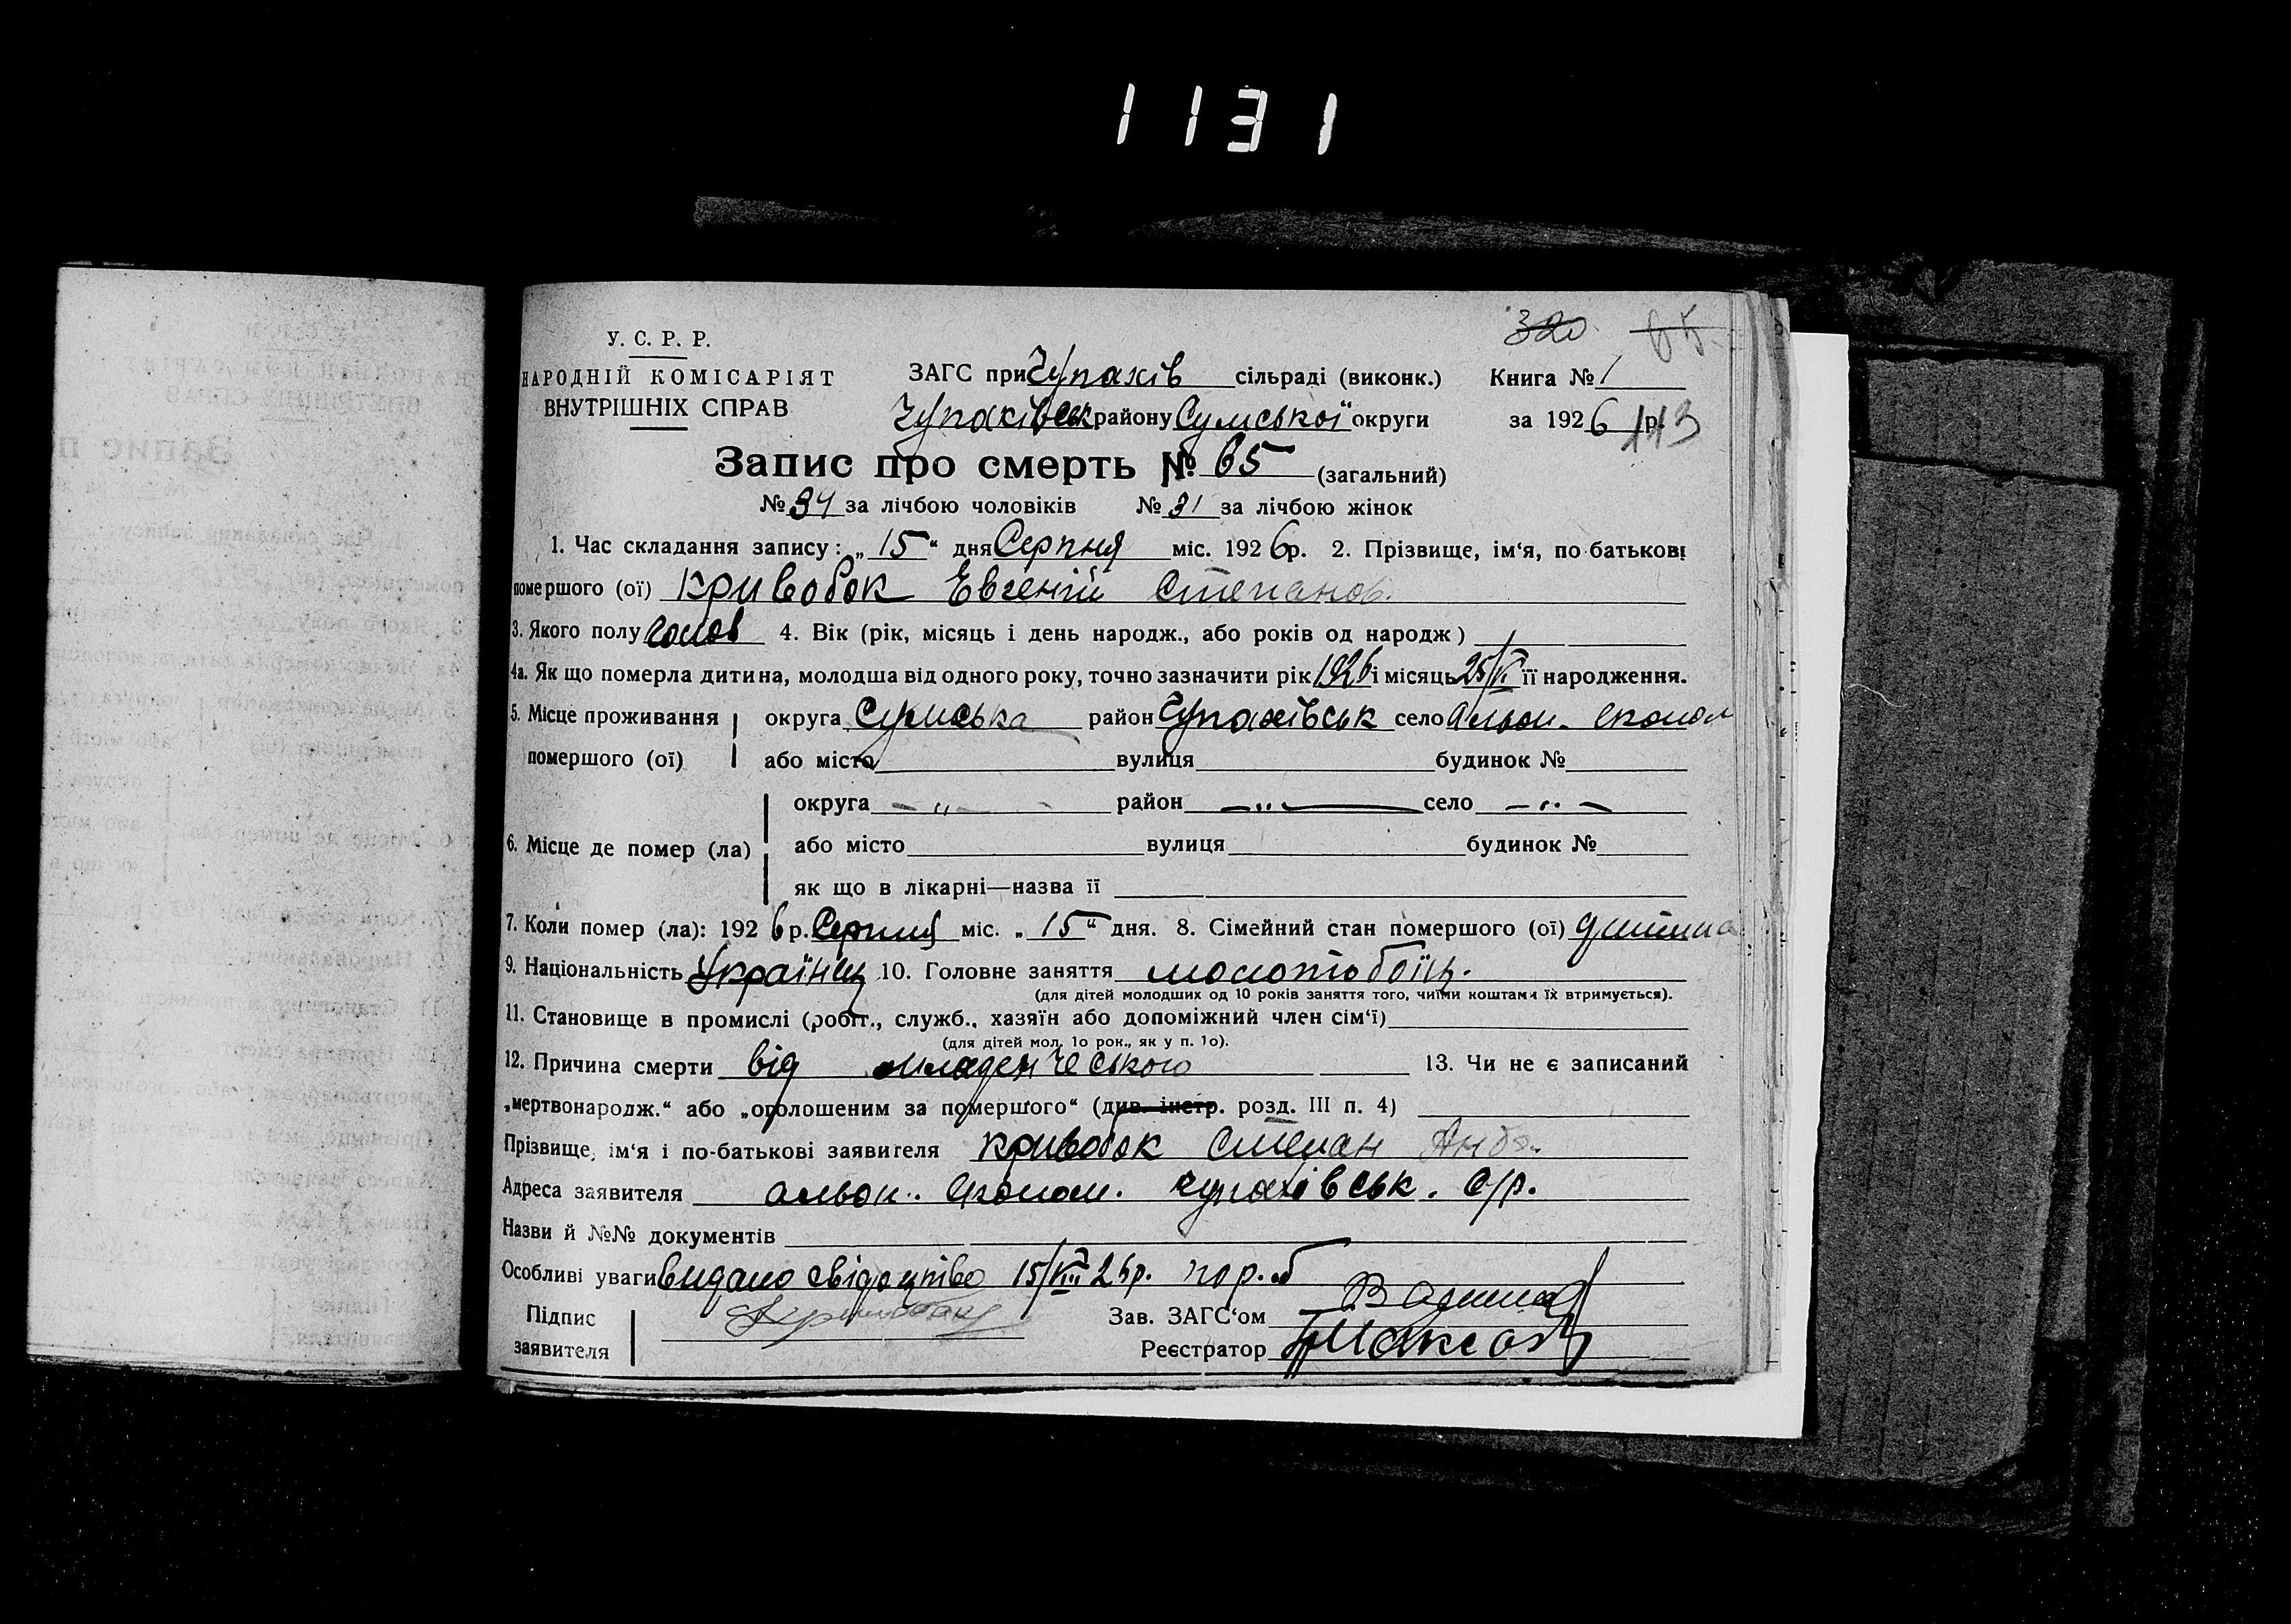 1131
320 65
У. С. Р. Р.
НАРОДНІЙ КОМІСАРІЯТ
ВНУТРІШНІХ СПРАВ
ЗАГС при Чупахів сільраді (виконк.) Книга № 1
Чупахівськ району Сумської округи за 1926 р. 113
Запис про смерть № 65 (загальний)
№ 34 за лічбою чоловіків № 31 за лічбою жінок
1. Час складання запису: „ 15 “ дня Серпня міс. 1926 р. 2. Прізвище, ім‘я, по батькові
помершого (ої) Кривобок Евгений Степанов.
3. Якого полу чолов 4. Вік (рік, місяць і день народж., або років од народж)
4а. Як що померла дитина, молодша від одного року, точно зазначити рік 1926 і місяць 25/ її народження.
5. Місце проживання округа Сумська район Чупахівськ село економ
помершого (ої) або місто вулиця будинок №
округа - „ - район - „ - село - „ -
6. Місце де помер (ла) або місто вулиця будинок №
як що в лікарні—назва її
7. Коли помер (ла): 1926 р. Серпня міс. „ 15 “ дня. 8. Сімейний стан помершого (ої) дитина
9. Національність Українец 10. Головне заняття молотобоїц.
(для дітей молодших од 10 років заняття того, чиїми коштами їх втримується).
11. Становище в промислі (робіт., служб., хазяїн або допоміжний член сім‘ї)
(для дітей мол. 1о рок., як у п. 1о).
12. Причина смерти від младенческого 13. Чи не є записаний
„мертвонародж.“ або „оголошеним за помершого“ (див. інстр. розд. III п. 4)
Прізвище, ім‘я і по-батькові заявителя Кривобок Степан
Адреса заявителя економ. Чупахівськ. с/р.
Назви й №№ документів
Особливі уваги видано свідоцтво 15/VIII 26р.
Підпис Зав. ЗАГС‘ом
заявителя Реєстратор